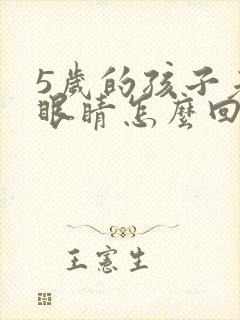 5歲的孩子
眼睛怎麼回
王憲生